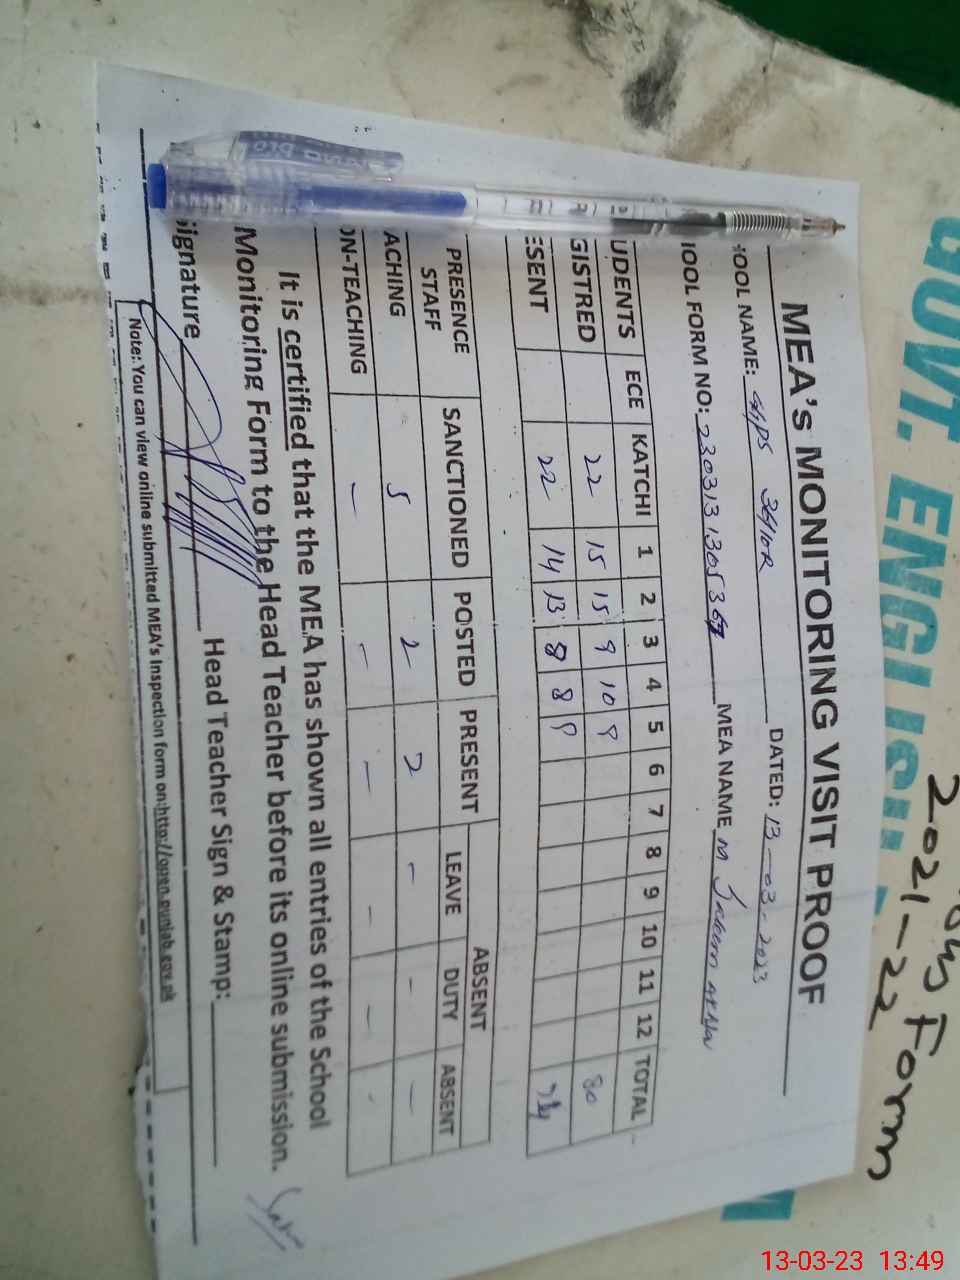 GOVT. ENGLISH
Form
2021-22
MEA's MONITORING VISIT PROOF
HOOL NAME: GPS 36/10R DATED: 13-03-2023
HOOL FORM NO: MEA NAME M
UDENTS ECE KATCHI 1 2 3 4 5 6 7 8 9 10 11 12 TOTAL
GISTRED 22 15 15 9 10 9 80
ESENT 22 14 13 8 8 9 74
PRESENCE STAFF SANCTIONED POSTED PRESENT ABSENT
LEAVE DUTY ABSENT
ACHING 5 2 2 - - -
ON-TEACHING - - - - - -
It is certified that the MEA has shown all entries of the School
Monitoring Form to the Head Teacher before its online submission.
ignature Head Teacher Sign & Stamp:
Note: You can view online submitted MEA's Inspection form on:http://open.punjab.gov.pk
13-03-23 13:49